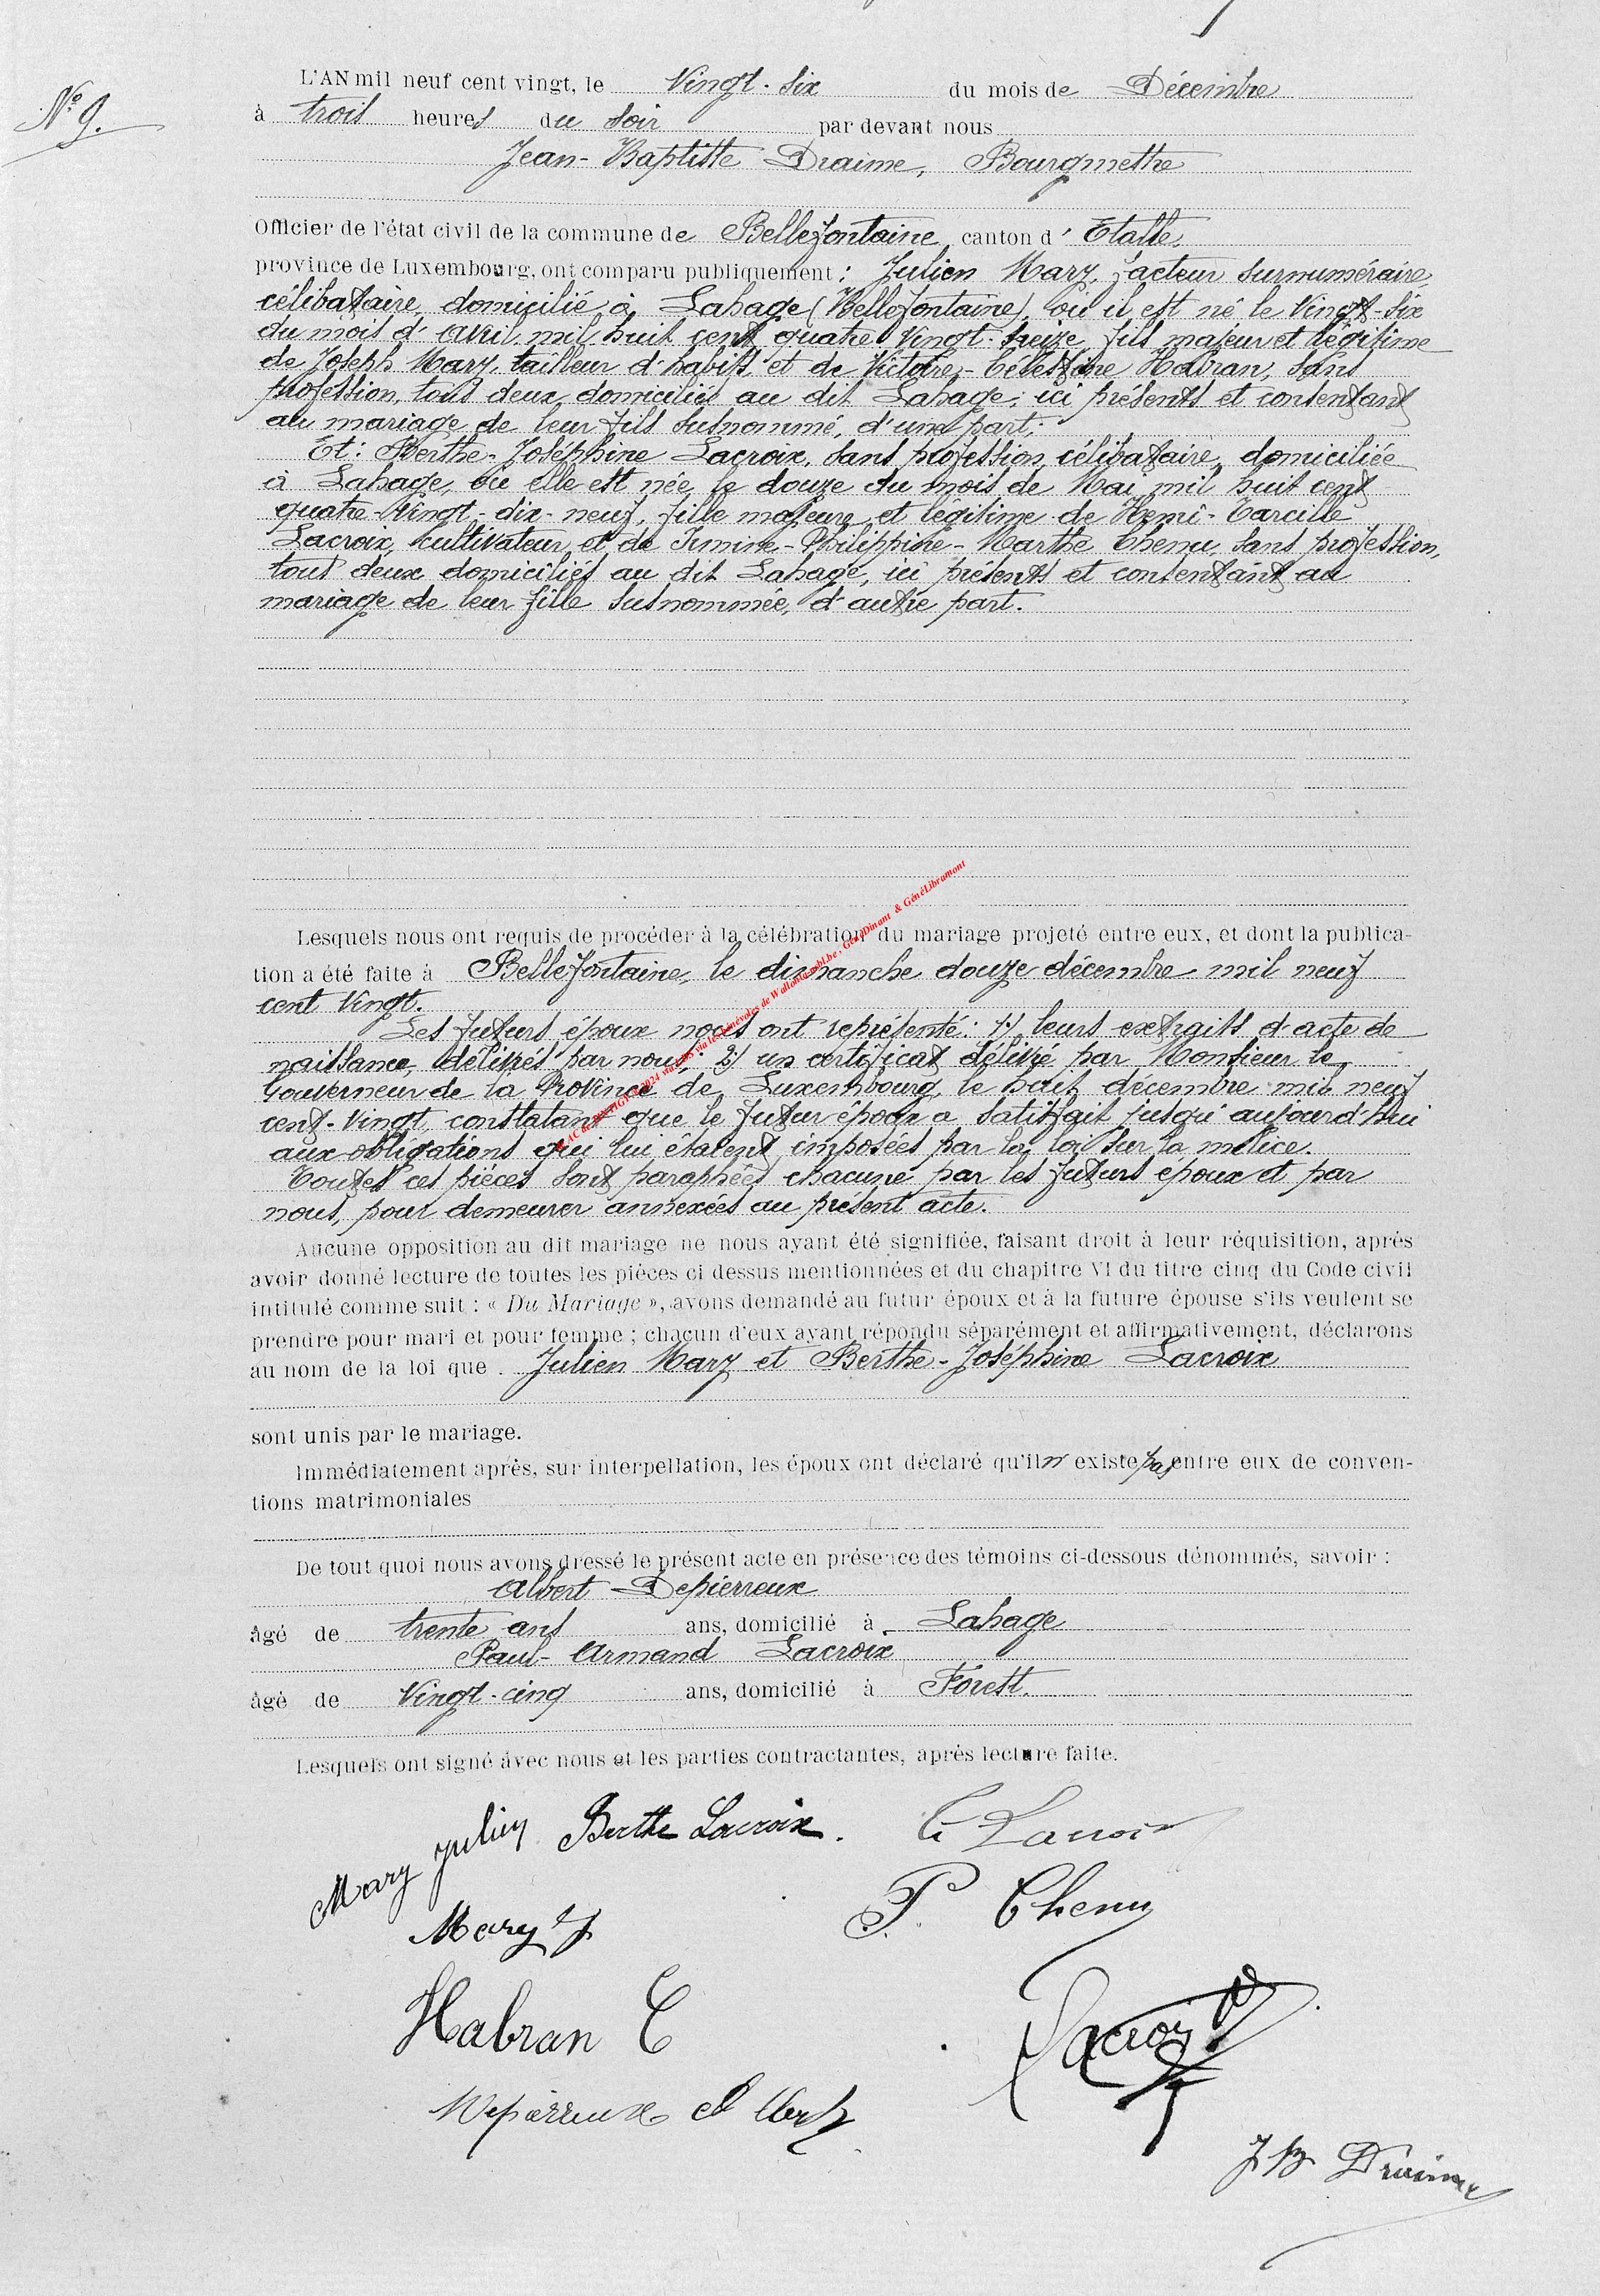 N° 9.
L'AN mil neuf cent vingt, le Vingt-six du mois de Décembre
à trois heures du soir par devant nous
Jean-Baptiste Draime, Bourgmestre
Officier de l'état civil de la commune de Bellefontaine, canton d'Etalle,
province de Luxembourg, ont comparu publiquement : Julien Mary, facteur surnuméraire,
célibataire, domicilié à Lahage (Bellefontaine), où il est né le Vingt-six
du mois d'avril mil huit cent quatre-Vingt-treize, fils majeur et légitime
de Joseph Mary, tailleur d'habits et de Victoire-Célestine Habran, sans
profession, tous deux domiciliés au dit Lahage, ici présents et contentant
au mariage de leur fils susnommé, d'une part;
Et : Berthe-Joséphine Lacroix, sans profession, célibataire, domiciliée
à Lahage, où elle est née le douze du mois de Mai mil huit cent
quatre-Vingt-dix-neuf, fille majeure et légitime de Henri-Tarcille
Lacroix, cultivateur et de Philippine-Marthe Chenu, sans profession,
tous deux domiciliés au dit Lahage, ici présents et contentant au
mariage de leur fille susnommée, d'autre part.
Lesquels nous ont requis de procéder à la célébration du mariage projeté entre eux, et dont la publica-
tion a été faite à Bellefontaine, le dimanche douze décembre mil neuf
cent Vingt.
Les futurs époux nous ont représenté : 1°) leurs extraits d'acte de
naissance, délivrés par nous : 2°) un certificat délivré par Monsieur le
Gouverneur de la Province de Luxembourg, le huit décembre mil neuf
cent-Vingt, constatant que le futur époux a satisfait jusqu'aujourd'hui
aux obligations qui lui étaient imposées par la loi sur la milice.
Toutes ces pièces sont paraphées chacune par les futurs époux et par
nous, pour demeurer annexées au présent acte.
Aucune opposition au dit mariage ne nous ayant été signifiée, faisant droit à leur réquisition, après
avoir donné lecture de toutes les pièces ci dessus mentionnées et du chapitre VI du titre cinq du Code civil
intitulé comme suit : « Du Mariage », avons demandé au futur époux et à la future épouse s'ils veulent se
prendre pour mari et pour femme ; chacun d'eux ayant répondu séparément et affirmativement, déclarons
au nom de la loi que Julien Mary et Berthe-Joséphine Lacroix
sont unis par le mariage.
Immédiatement après, sur interpellation, les époux ont déclaré qu'il n'existe pas entre eux de conven-
tions matrimoniales
De tout quoi nous avons dressé le présent acte en présence des témoins ci-dessous dénommés, savoir :
Albert Depierreux
âgé de trente ans ans, domicilié à Lahage
Paul-Armand Lacroix
âgé de Vingt-cinq ans, domicilié à Forest.
Lesquels ont signé avec nous et les parties contractantes, après lecture faite.
Mary Julien Berthe Lacroix. Lacroix
Mary J P. Chenu
Habran C Lacroix
Depierreux Albert
JB Draime
2024 via les bénévoles de Wallonia asbl.be, GénéDinant & GénéLibramont